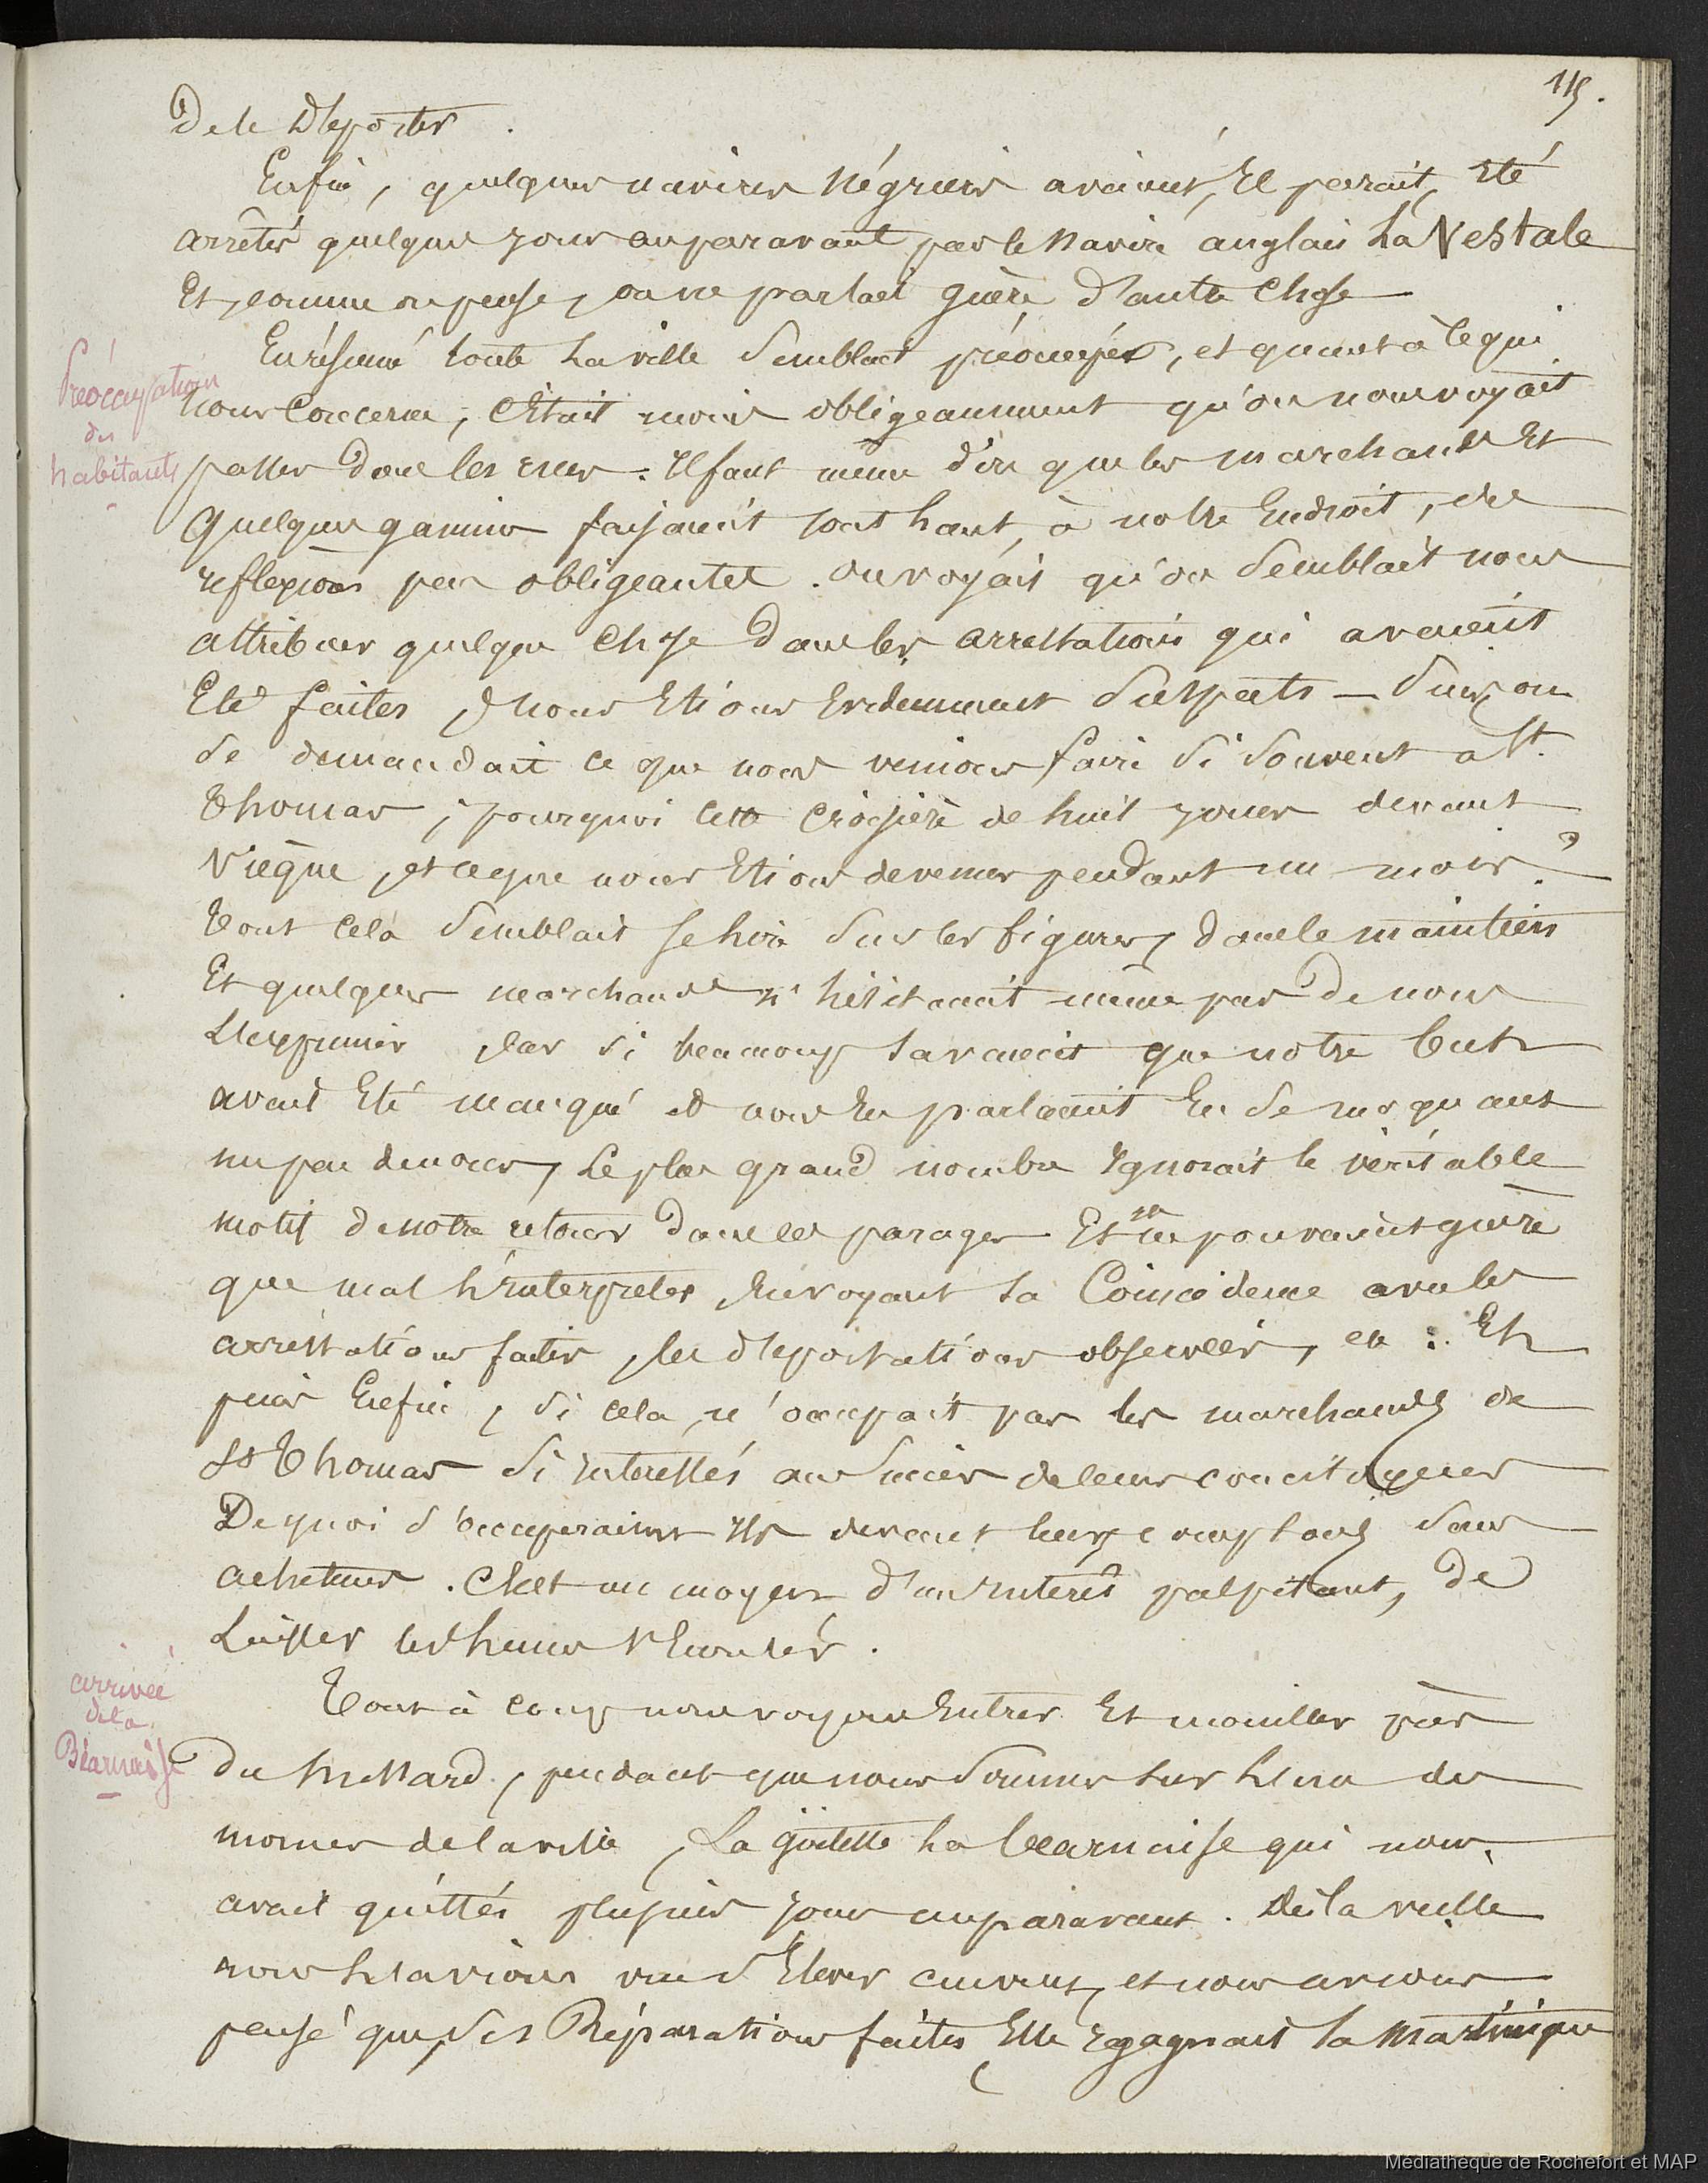 115.
De le Déporter.
Enfin, quelques navires Négriers avaient, Il parait, Eté
arrêtés quelques jours auparavant par le Navire anglais La Vestale
Et, comme on pense, on ne parlait guère d'autre Chose
Préocupation
des
habitants
En résumé toute la ville Semblait préocupée, et quant à Ce qui
nous Concerne, C'Etait moins obligeamment qu'on nous voyait
passer dans les rues. Il faut même dire que les marchands Et
Quelques gamins faisaient tout haut, à notre Endroit, des
reflexions peu obligeantes. On voyait qu'on Semblait nous
attribuer quelque Chose dans les arrestations qui avaient
Eté faites, & nous Etions Evidemment Suspects — Puis, on
Se demandait Ce que nous venions faire Si Souvent à St
Thomas, pourquoi Cette Croisière de huit jours devant
Vièque, et ce que nous Etions devenus pendant un mois?
Tout Celà Semblait Se lire Sur les figures, dans le maintien
Et quelques marchands n'hésitaient même pas De nous
L'exprimer, Car Si beaucoup Savaient que notre but
avait Eté manqué et nous En parlaient En Se moquant
un peu de nous, Le plus grand nombre Ignorait le véritable
motif de notre retour Dans Ces parages Et ne pouvaient guère
que mal l'interpreter, En voyant la Coincidence avec les
arrestations faites, les déportations observées, etc: Et
puis Enfin, Si Cela n'occupait pas les marchands de
St Thomas Si Interessés au Succès de leurs concitoyens
De quoi S'occuperaient Ils devant leurs comptoirs Sans
acheteurs. C'Est un moyen d'un Interêt palpitant, De
Laisser les heures S'Ecouler.
arrivée
de la
Béarnaise
Tout à Coup nous voyons Entrer Et mouiller près
Du Mettard, pendant que nous Sommes Sur L'un des
mornes de la ville, La goëlette La Béarnaise qui nous
avait quittés plusieurs jours auparavant. Dès la veille
nous L'avions vue S'Elever au vent, et nous avions
pensé que, Ses Réparations faites, Elle regagnait la Martinique
Mediatheque de Rochefort et MAP